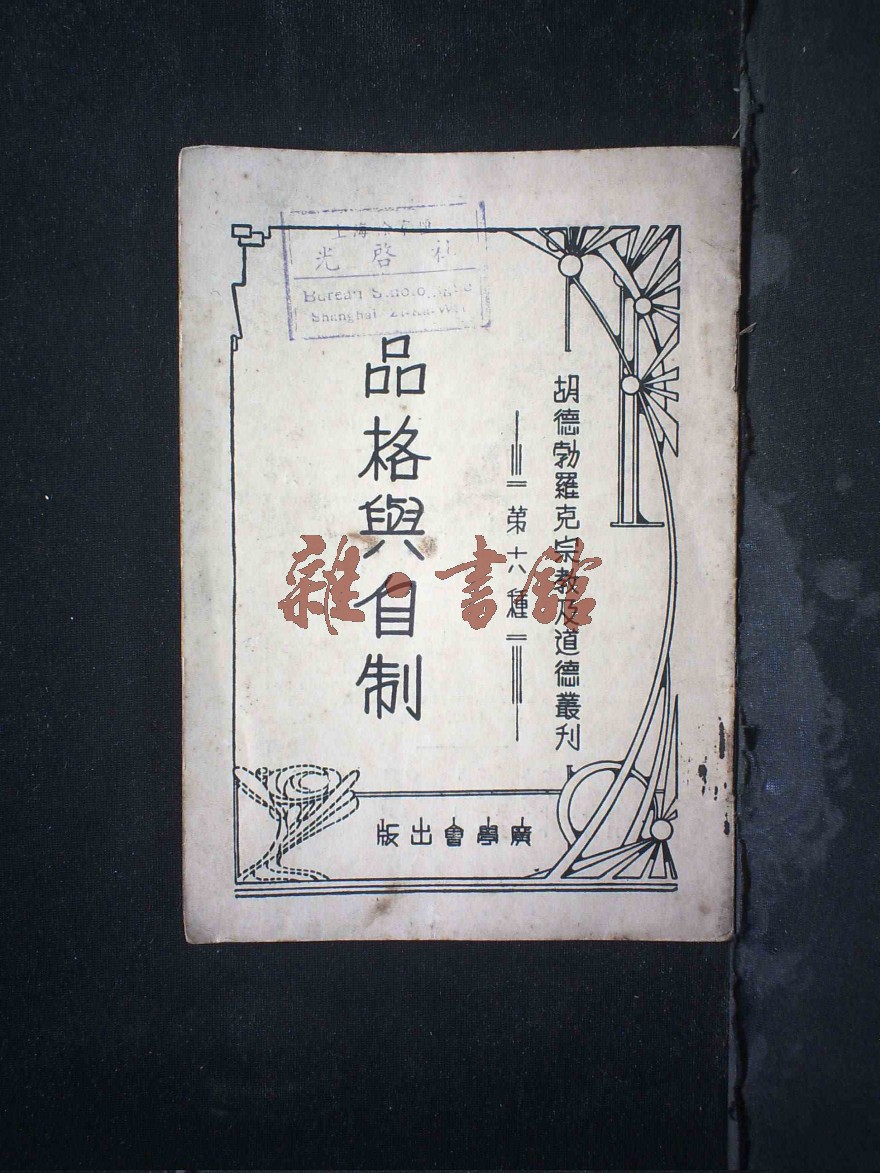 胡德勃羅克宗教及道德叢刊
第六種
品格與自制
廣學會出版
上海
光啓社
Bureau
Shanghai Zi-Ka-Wei
雜·書館